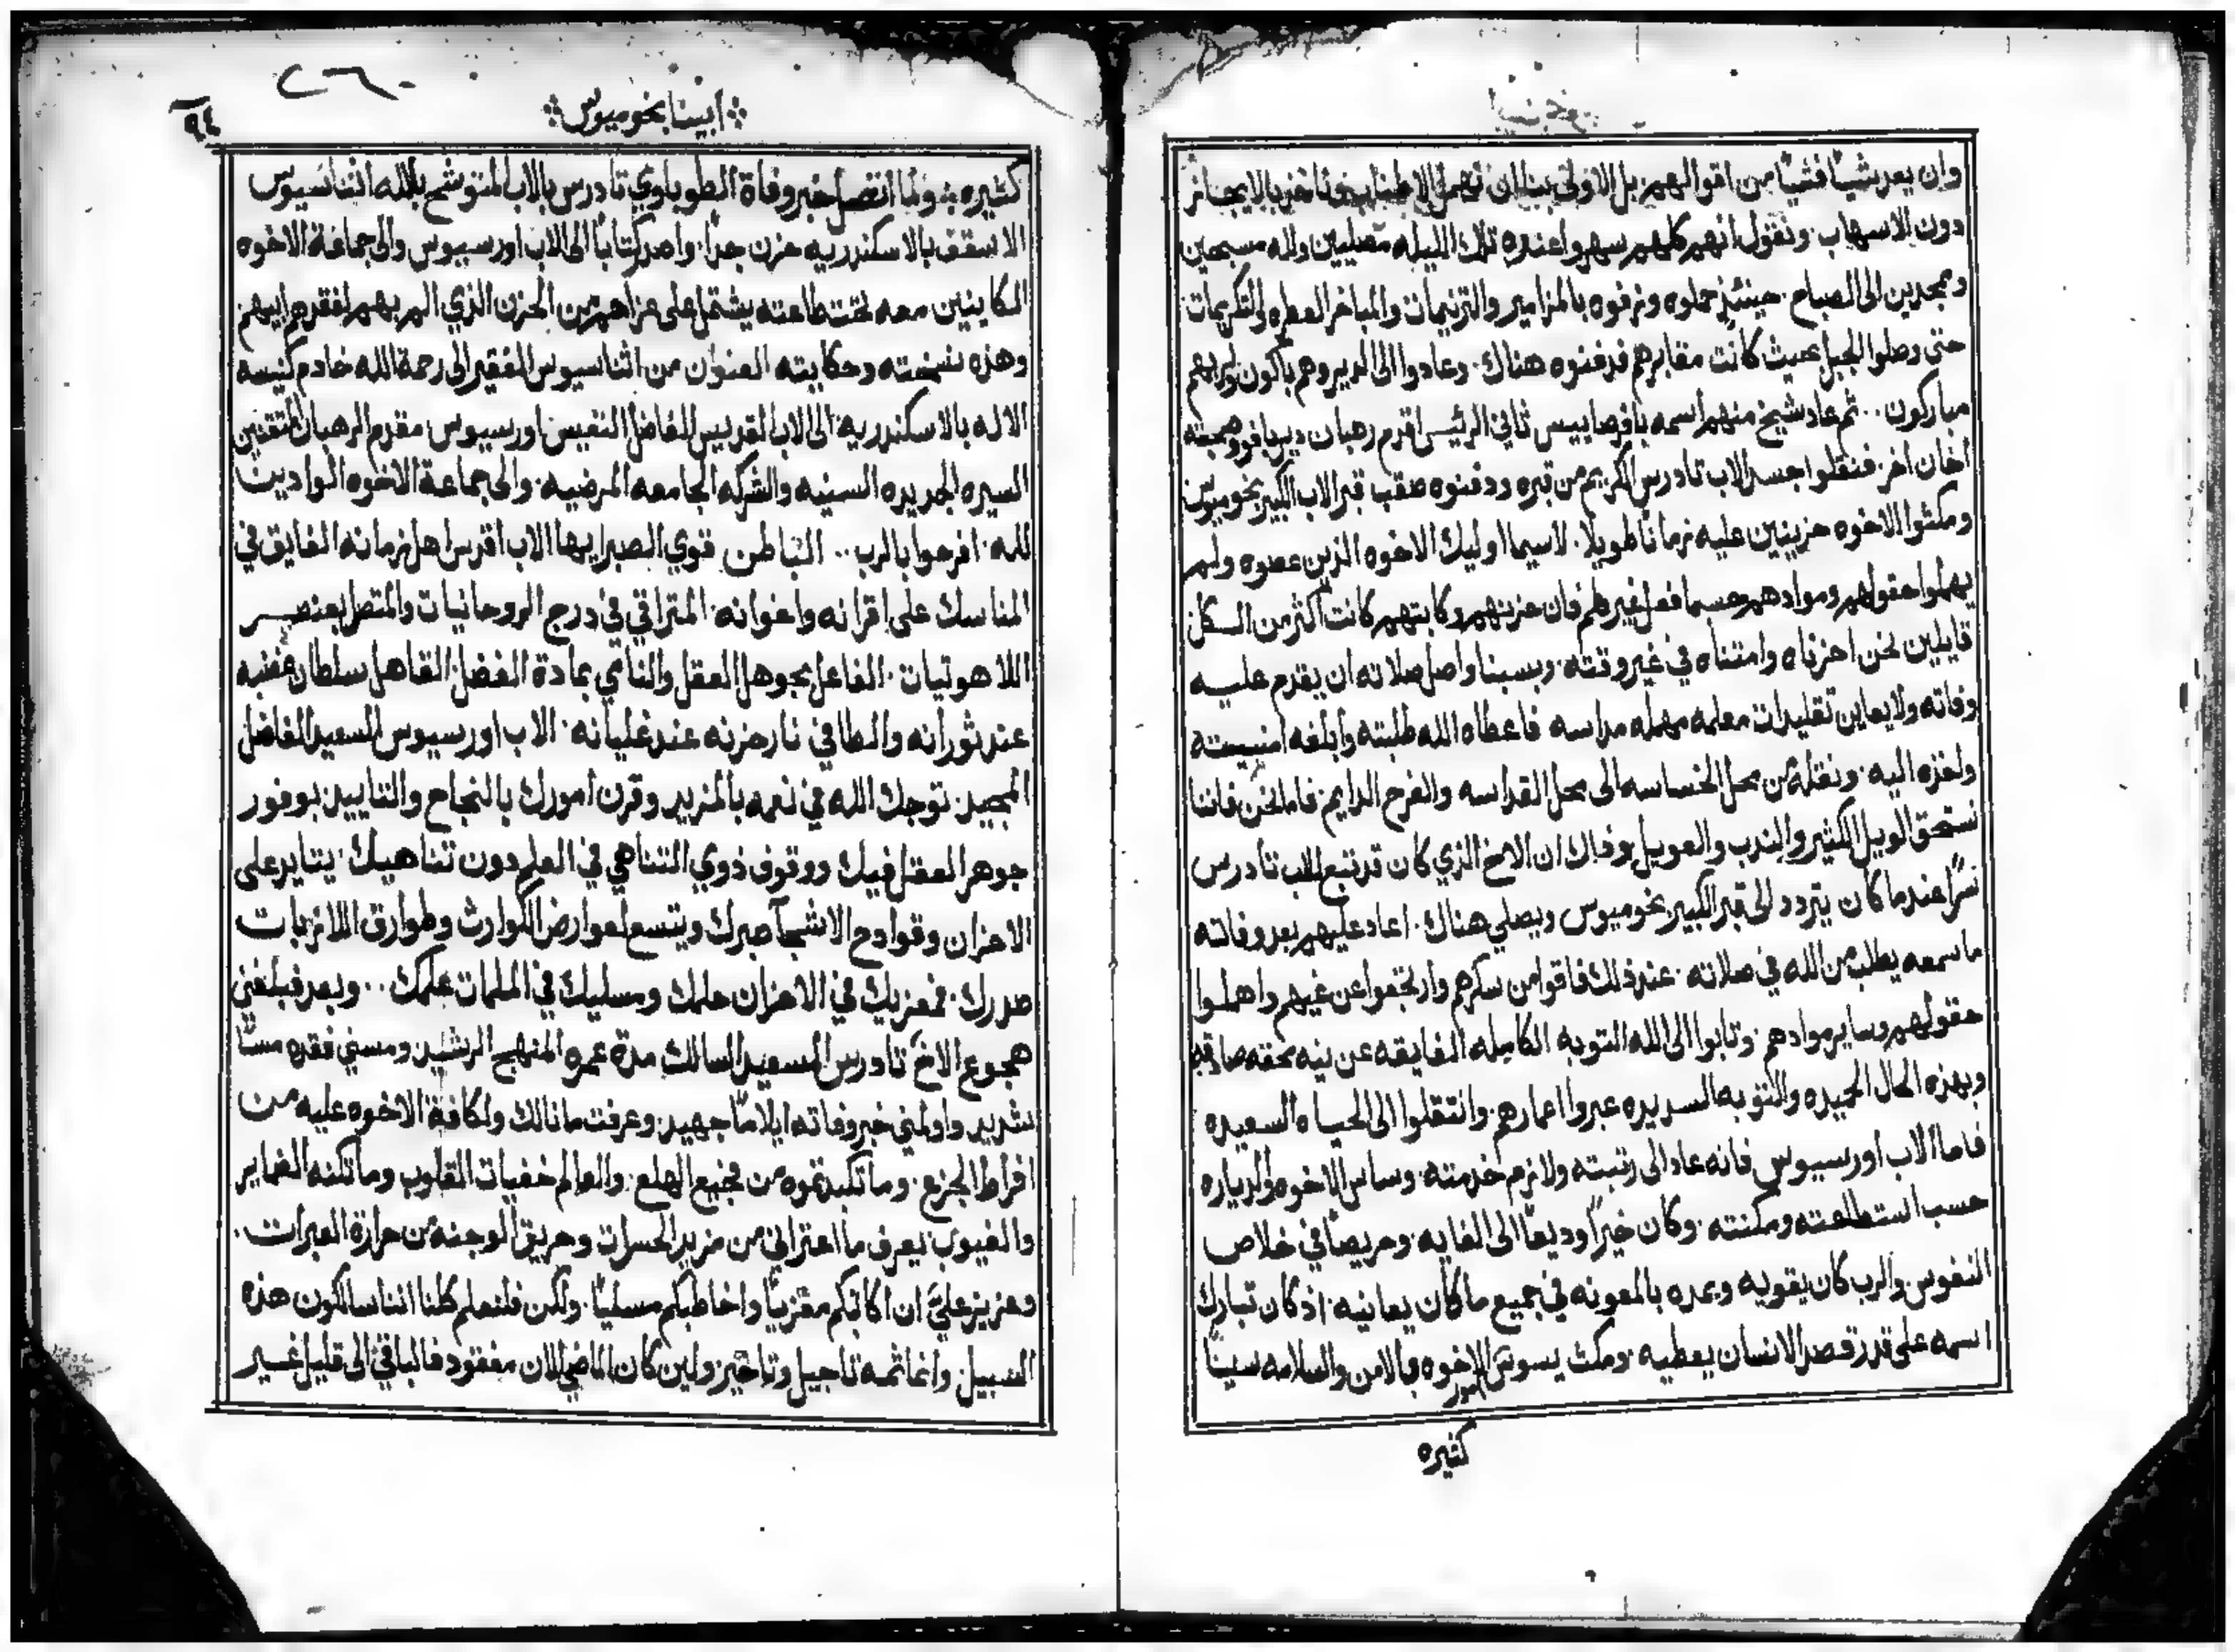 وان يعد شيًا فشيًا من اقوالهم بل الاولى بنا ان نهمل الاطناب وناخذ بالايجاز
دون الاسهاب. ونقول انهم كلهم سهروا عنده تلك الليله مصليين ولله مسبحين
وممجدين الى الصباح. حينئذٍ حملوه وزفوه بالمزامير والترنيمات والمباخر العطره والتكريمات
حتى وصلوا الجبل بحيث كانت مقابرهم فدفنوه هناك. وعادوا الى الدير وهم باكون ولربهم
مباركون.. ثم عاد شيخ منهم اسمه بافرصاييس ثاني الرئيس اقدم رهبان دير بافو وصحبته
اخان اخر. فنقلوا جسد الاب تادرس الكريم من قبره ودفنوه صقب قبر الاب الكبير بخوميوس
ومكثوا الاخوه حزينين عليه زمانًا طويلا. لاسيما اوليك الاخوه الذين عصوه ولم
يهملوا حقولهم وموادهم حسبما فعل غيرهم فان حزنهم وكابتهم كانت اكثر من الكل
قايلين نحن احزناه وامتناه في غير وقته. وبسببنا واصل صلاته ان يقدم عليه
وفاته ولا يعاين تقليدات معلمه مهمله مداسه فاعطاه الله طلبته وابلغه امنيته
واخذه اليه. ونقله من محل الخساسه الى محل القداسه والفرح الدايم. فاما نحن فاننا
نستحق الويل الكثير والندب والعويل. وذاك ان الاخ الذي كان قد تبع الاب تادرس
سرًا عندما كان يتردد الى قبر الكبير بخوميوس ويصلي هناك. اعاد عليهم بعد وفاته
ما سمعه يطلب من الله في صلاته. عند ذلك فاقوا من سكرهم وارتجعوا عن غيهم واهملوا
حقولهم وساير موادهم. وتابوا الى الله التوبه الكامله الفايقه عن نيه محقه صادقه
وبهذه الحال الجيده والتوبه السديده عبروا اعمارهم. وانتقلوا الى الحياه السعيده
فاما الاب اورسيوس فانه عاد الى رتبته ولازم خدمته. وساس الاخوه والدياره
حسب استطاعته ومكنته. وكان خيرًا وديعًا الى الغايه. وحريصًا في خلاص
النفوس والرب كان يقويه ويمده بالمعونه في جميع ما كان يعانيه. اذ كان تبارك
اسمه على قدر قصد الانسان يعطيه. ومكث يسوس امور الاخوه بالامن والسلامه سنينًا
كثيره
ابينا بخوميوس
٩٤
كثيره. ولما اتصل خبر وفاة الطوباوي تادرس بالاب المتوشح بالله اثناسيوس
الاسقف بالاسكندريه حزن جدًا. واصدر كتابًا الى الاب اورسيوس والى جماعة الاخوه
الكاينين معه تحت طاعته يشتمل على عزاهم من الحزن الذي الم بهم لفقدهم ابيهم
وهذه نسخته وحكايته العنوان من اثناسيوس الفقير الى رحمة الله خادم كنيسه
الاله بالاسكندريه. الى الاب القديس الفاضل النفيس اورسيوس مقدم الرهبان المتقنين
السيره الجديده السنيه والشركه الجامعه المرضيه. والى جماعة الاخوه الوادين
لله. افرحوا بالرب.. الباطن قوي الصبر ايها الاب اقدس اهل زمانه الفايق في
المناسك على اقرانه واخوانه. المتراقي في درج الروحانيات والمتصل بعنصر
اللاهوتيات. الفاعل بجوهر العقل والناي بمادة الفضل القاهر سلطان غضبه
عند ثورانه والطافي نار حزنه عند غليانه. الاب اورسيوس السعيد الفاضل
المجيد. توجك الله في نعمه بالمزيد وقرن امورك بالنجاح والتاييد. بوفور
جوهر العقل فيك ووقوف ذوي التناهي في العلم دون تناهيك. يتايد على
الاحزان وقوادح الاشجآ صبرك ويتسع لعوارض الكوارث وطوارق اللازبات
صدرك. فمعزيك في الاحزان حلمك ومسليك في الملمات علمك.. وبعد فبلغني
هجوع الاخ تادرس السعيد السالك مدة عمره المنهج الرشيد ومسني فقده مسًا
شديد واولمني خبر وفاته ايلامًا جهيد. وعرفت ما نالك ولكافة الاخوه عليه من
افراط الجزع. وما تكبدتموه من فجيع الهلع. والعالم خفيات القلوب وما تكنه الضماير
والغيوب يعرف ما اعتراني من مزيد الحسرات وحريق الوجنه من حرارة العبرات.
وعزيز عليَّ ان اكاتبكم معزيًا واخاطبكم مسليًا. ولكن فلنعلم كلنا اننا سالكون هذه
السبيل. وانما ثمه تاجيل وتاخير ولين كان الماضي الان مفقود فالباقي الى قليل غير